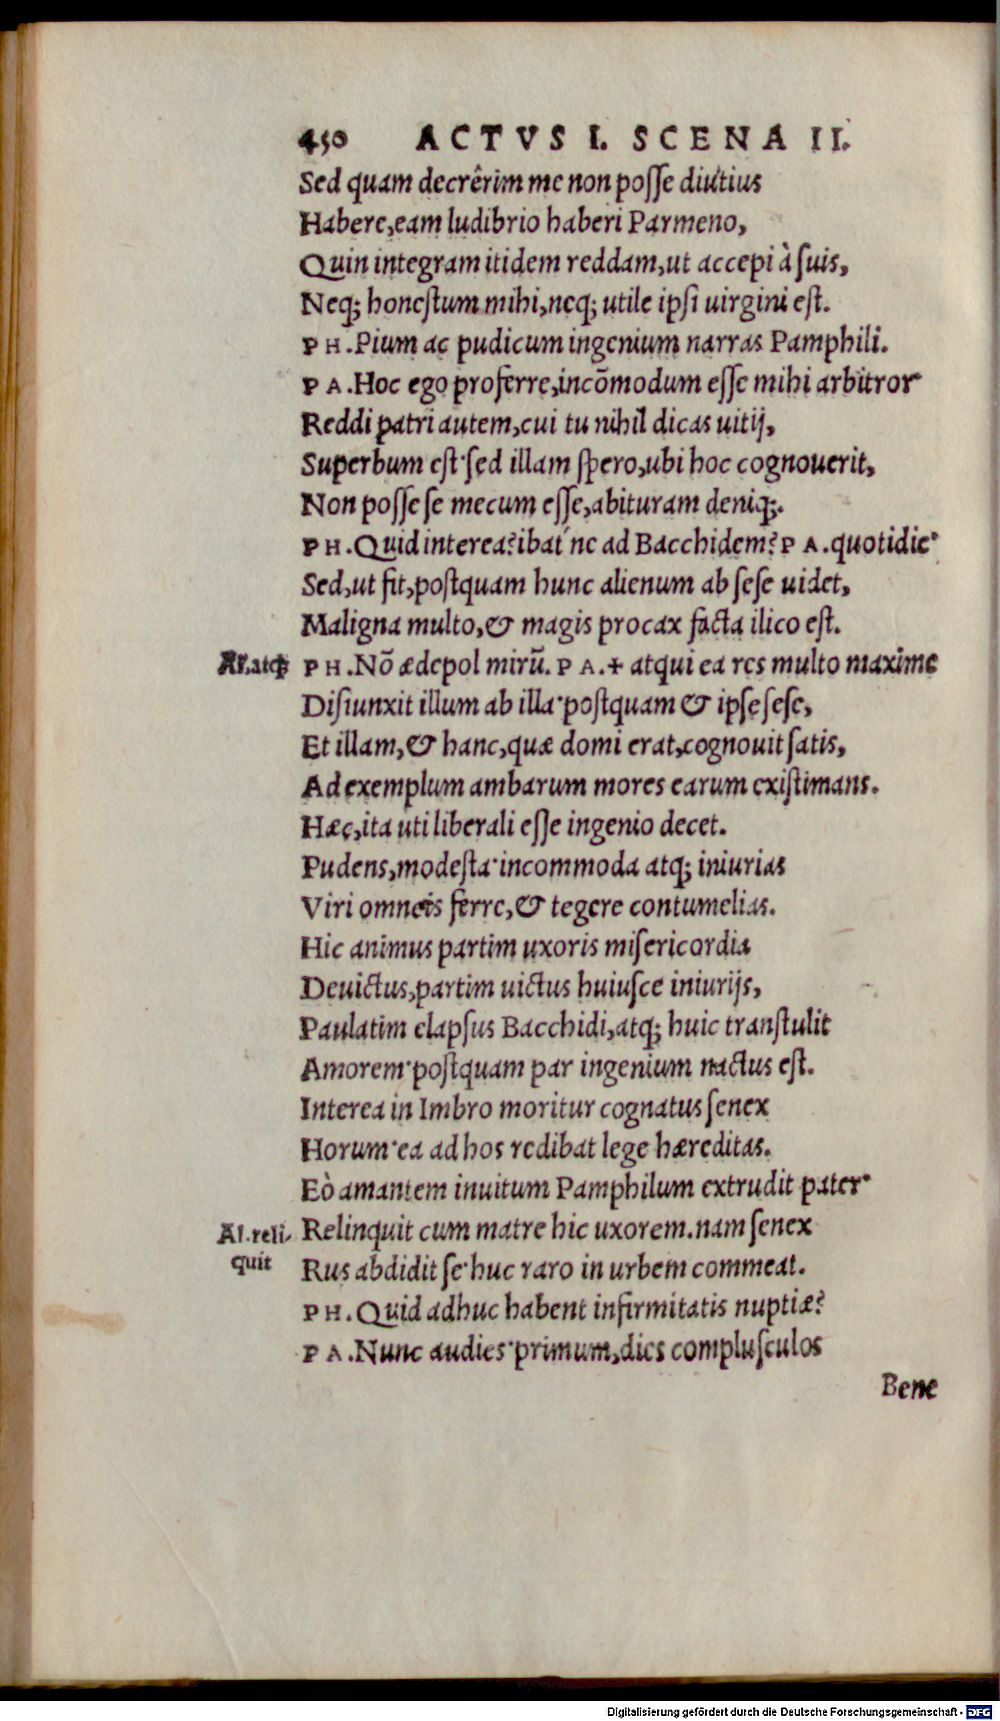 450 ACTVS I. SCENA II.
Sed quam decrêrim me non posse diutius
Habere, eam ludibrio haberi Parmeno,
Quin integram itidem reddam, ut accepi à suis,
Neq; honestum mihi, neq; utile ipsi uirgini est.
PH. Pium ac pudicum ingenium narras Pamphili.
PA. Hoc ego proferre, incōmodum esse mihi arbitror·
Reddi patri autem, cui tu nihil dicas uitij,
Superbum est· sed illam spero, ubi hoc cognouerit,
Non posse se mecum esse, abituram deniq;.
PH. Quid interea? ibat´ne ad Bacchidem? PA. quotidie·
Sed, ut fit, postquam hunc alienum ab sese uidet,
Maligna multo, & magis procax facta ilico est.
Al. atq; PH. Nō ædepol mirū. PA. + atqui ea res multo maxime
Disiunxit illum ab illa· postquam & ipse sese,
Et illam, & hanc, quæ domi erat, cognouit satis,
Ad exemplum ambarum mores earum existimans.
Hæc, ita uti liberali esse ingenio decet.
Pudens, modesta· incommoda atq; iniurias
Viri omneis ferre, & tegere contumelias.
Hic animus partim uxoris misericordia
Deuictus, partim uictus huiusce iniurijs,
Paulatim elapsus Bacchidi, atq; huic transtulit
Amorem· postquam par ingenium nactus est.
Interea in Imbro moritur cognatus senex
Horum· ea ad hos redibat lege hæreditas.
Eò amantem inuitum Pamphilum extrudit pater·
Al. reli- Relinquit cum matre hic uxorem. nam senex
quit Rus abdidit se· huc raro in urbem commeat.
PH. Quid adhuc habent infirmitatis nuptiæ?
PA. Nunc audies· primum, dies complusculos
Bene
Digitalisierung gefördert durch die Deutsche Forschungsgemeinschaft - DFG